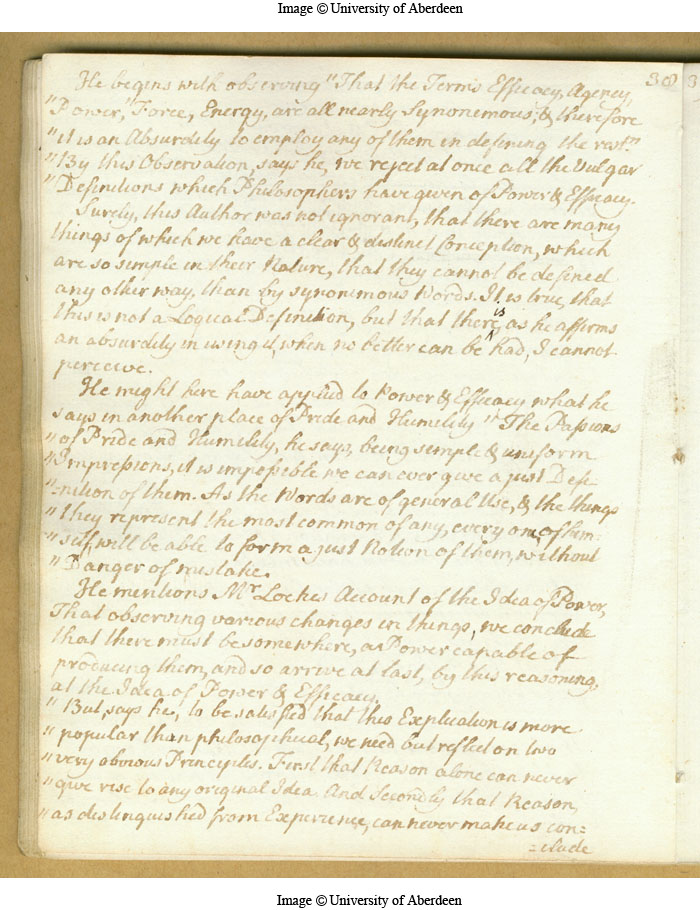 Image © University of Aberdeen
30
3
He begins with observing "That the Terms Efficacy, Agency,
"Power," "Force, Energy, are all nearly Synonemous; & therefore
"it is an Absurdity to employ any of them in defining the rest."
"By this Observation, says he, we reject at once all the Vulgar
"Definitions which Philosophers have given of Power & Efficacy.
Surely, this Author was not ignorant, that there are many
things of which we have a clear & distinct Conception, which
are so simple in their Nature, that they cannot be defined
any other way, than by synonimous Words. It is true, that
this is not a Logical Definition, but that there is, as he affirms
an absurdity in using it, when no better can be had, I cannot
perceive.
He might here have applied to Power & Efficacy what he
says in another place of Pride and Humility "The Passions
"of Pride and Humility, he says, being simple & uniform
"Impressions, it is impossible we can ever give a just Defi-
"=nition of them. As the Words are of general Use, & the things
"they represent the most common of any, every one, of him-
"self, will be able to form a just Notion of them, without
"Danger of mistake.
He mentions Mr Lockes Account of the Idea of Power,
That observing various changes in things, we conclude
that there must be somewhere, a Power capable of
producing them, and so arrive at last, by this reasoning,
at the Idea of Power & Efficacy.
"But, says he, to be satisfied that this Explication is more
"popular than philosophical, we need but reflect on two
"very obvious Principles. First that Reason alone can never
"give rise to any original Idea. And Secondly that Reason,
"as distinguished from Experience, can never make us con=
=clude
Image © University of Aberdeen